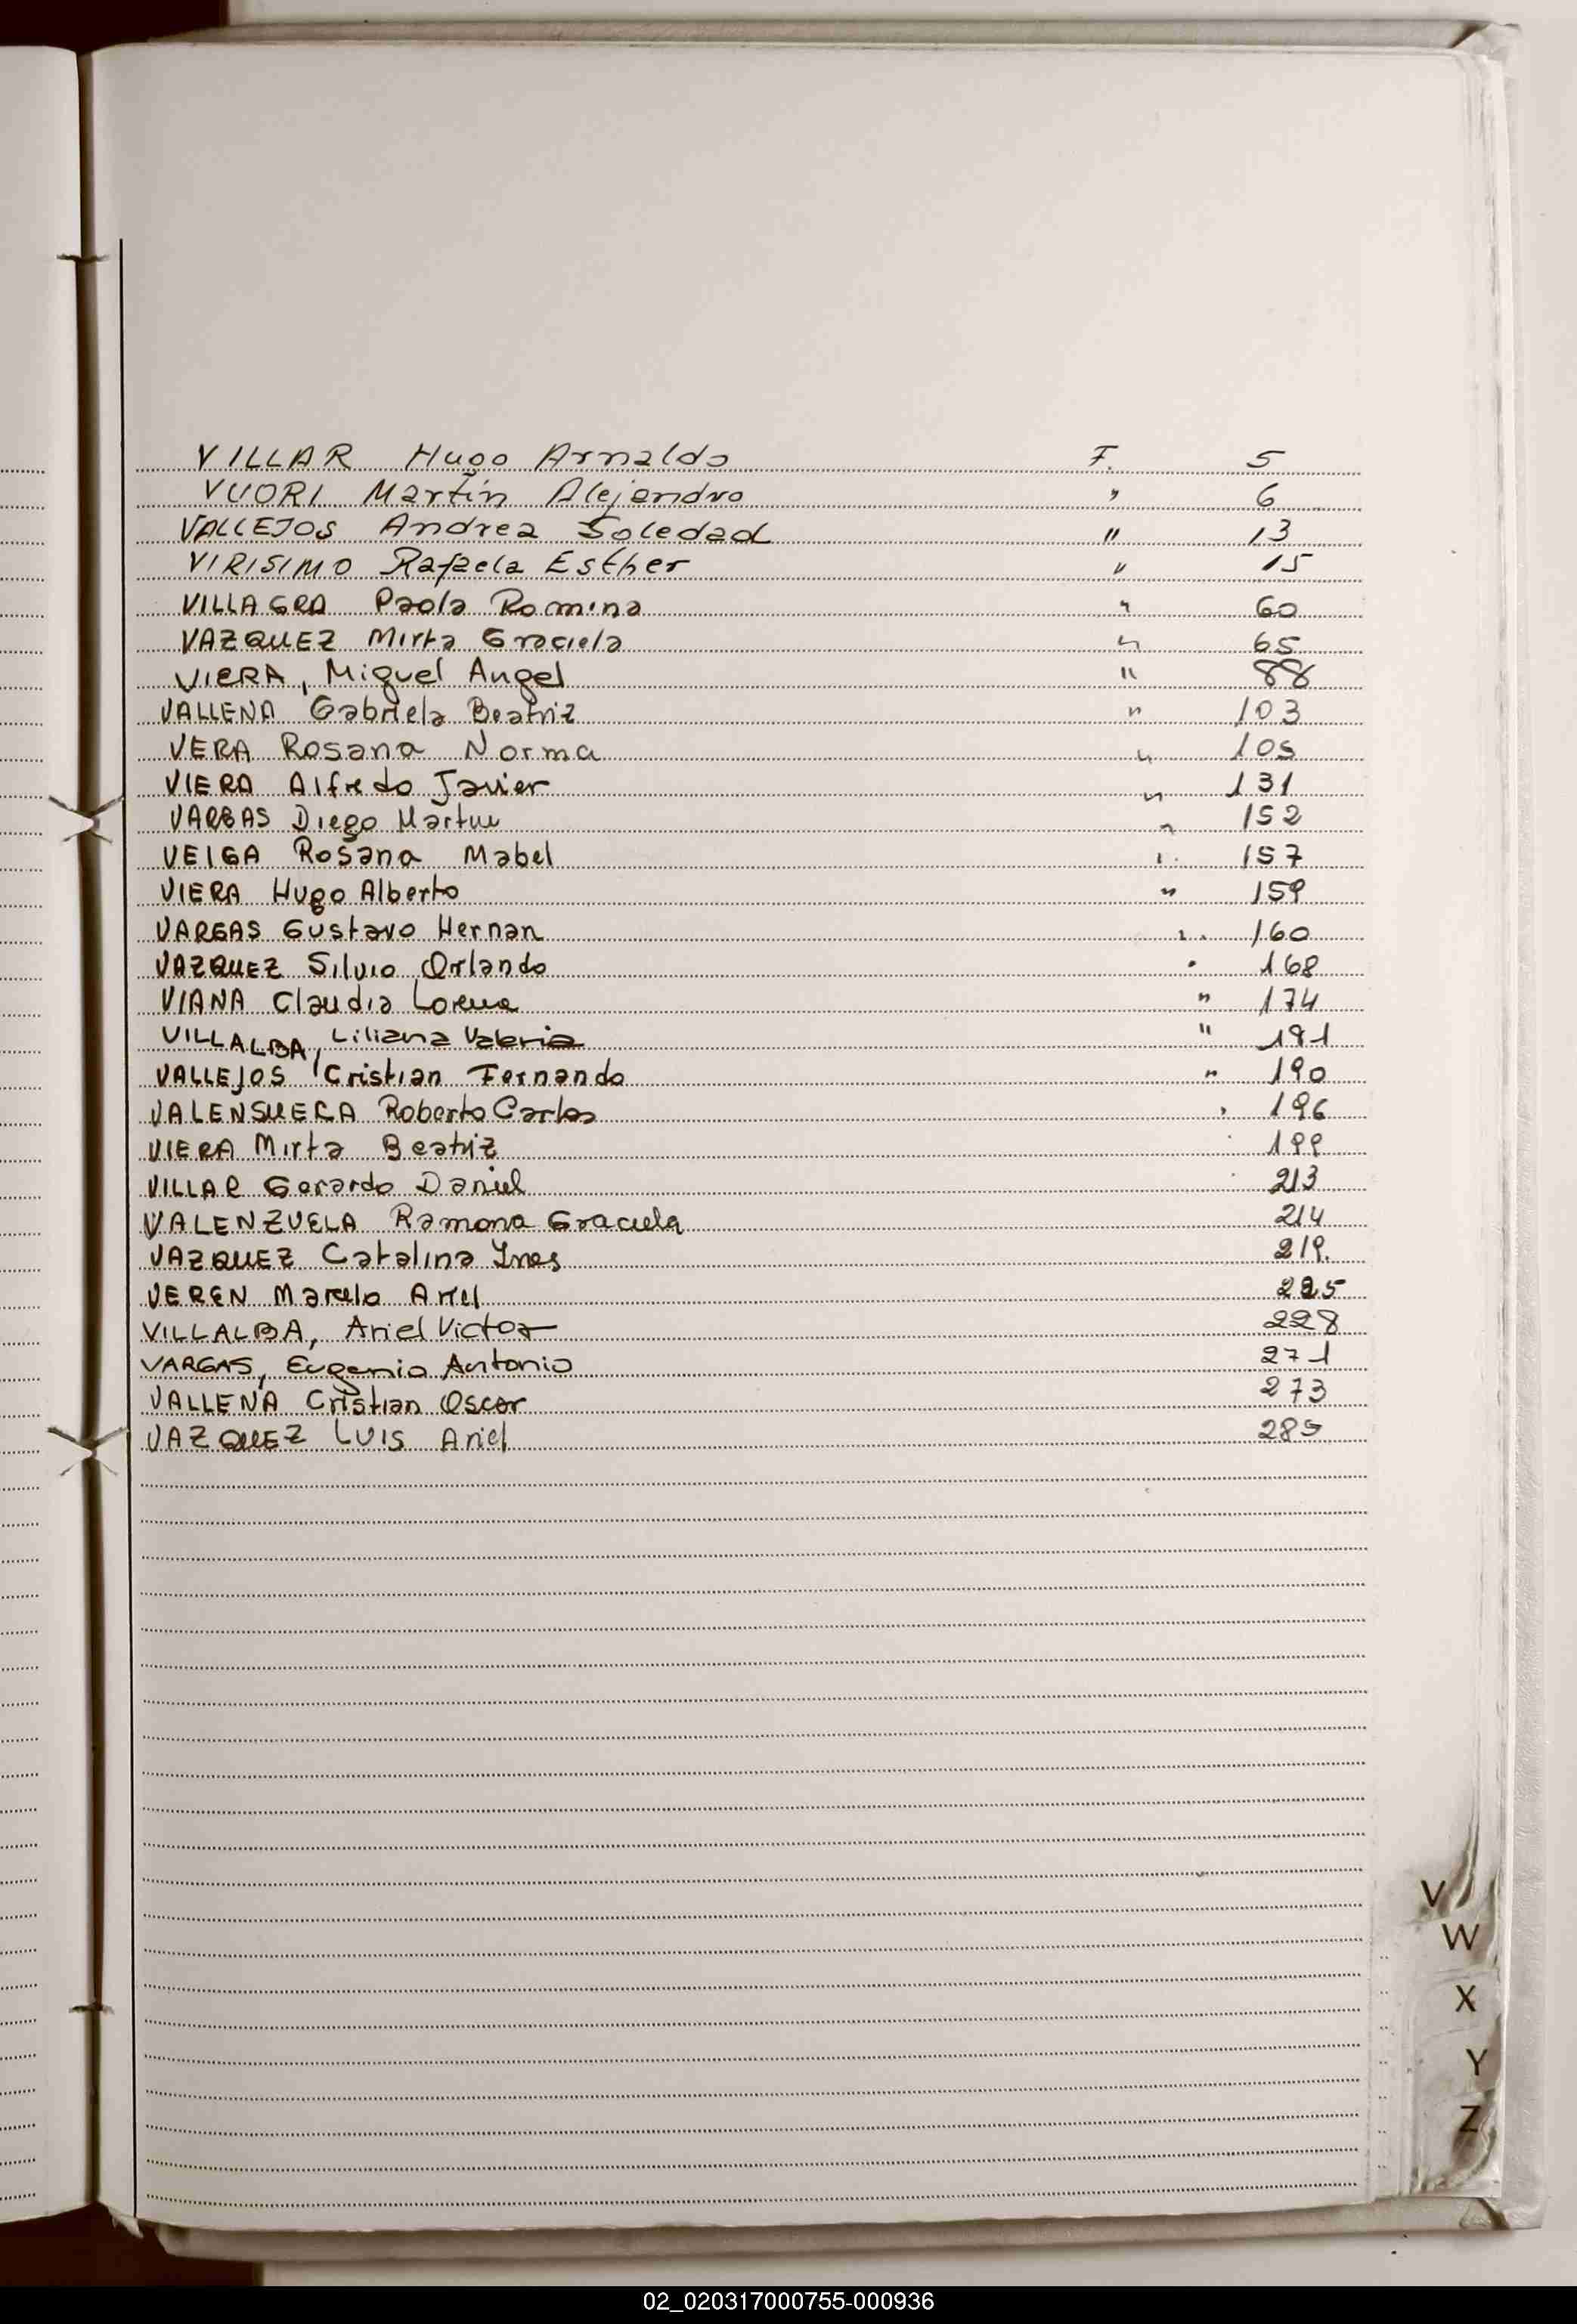 VILLAR Hugo Arnaldo F. 5
VUORI Martín Alejandro " 6
VALLEJOS Andrea Soledad " 13
VIRISIMO Rafaela Esther " 15
VILLAGRA Paola Romina " 60
VAZQUEZ Mirta Graciela " 65
VIERA, Miguel Angel " 88
VALLENA Gabriela Beatriz " 103
VERA Rosana Norma " 105
VIERA Alfredo Javier " 131
VARGAS Diego Martin " 152
VEIGA Rosana Mabel " 157
VIERA Hugo Alberto " 159
VARGAS Gustavo Hernan " 160
VAZQUEZ Silvio Orlando " 168
VIANA Claudia Lorena " 174
VILLALBA, Liliana Valeria " 181
VALLEJOS Cristian Fernando " 190
VALENSUELA Roberto Carlos " 196
VIERA Mirta Beatriz 199
VILLAR Gerardo Daniel 213
VALENZUELA Ramona Graciela 214
VAZQUEZ Catalina Ines 219.
VEREN Marcelo Ariel 225
VILLALBA, Ariel Victor 228
VARGAS, Eugenio Antonio 271
VALLENA Cristian Oscar 273
VAZQUEZ LUIS Ariel 285
V
W
X
Y
Z
02_020317000755-000936